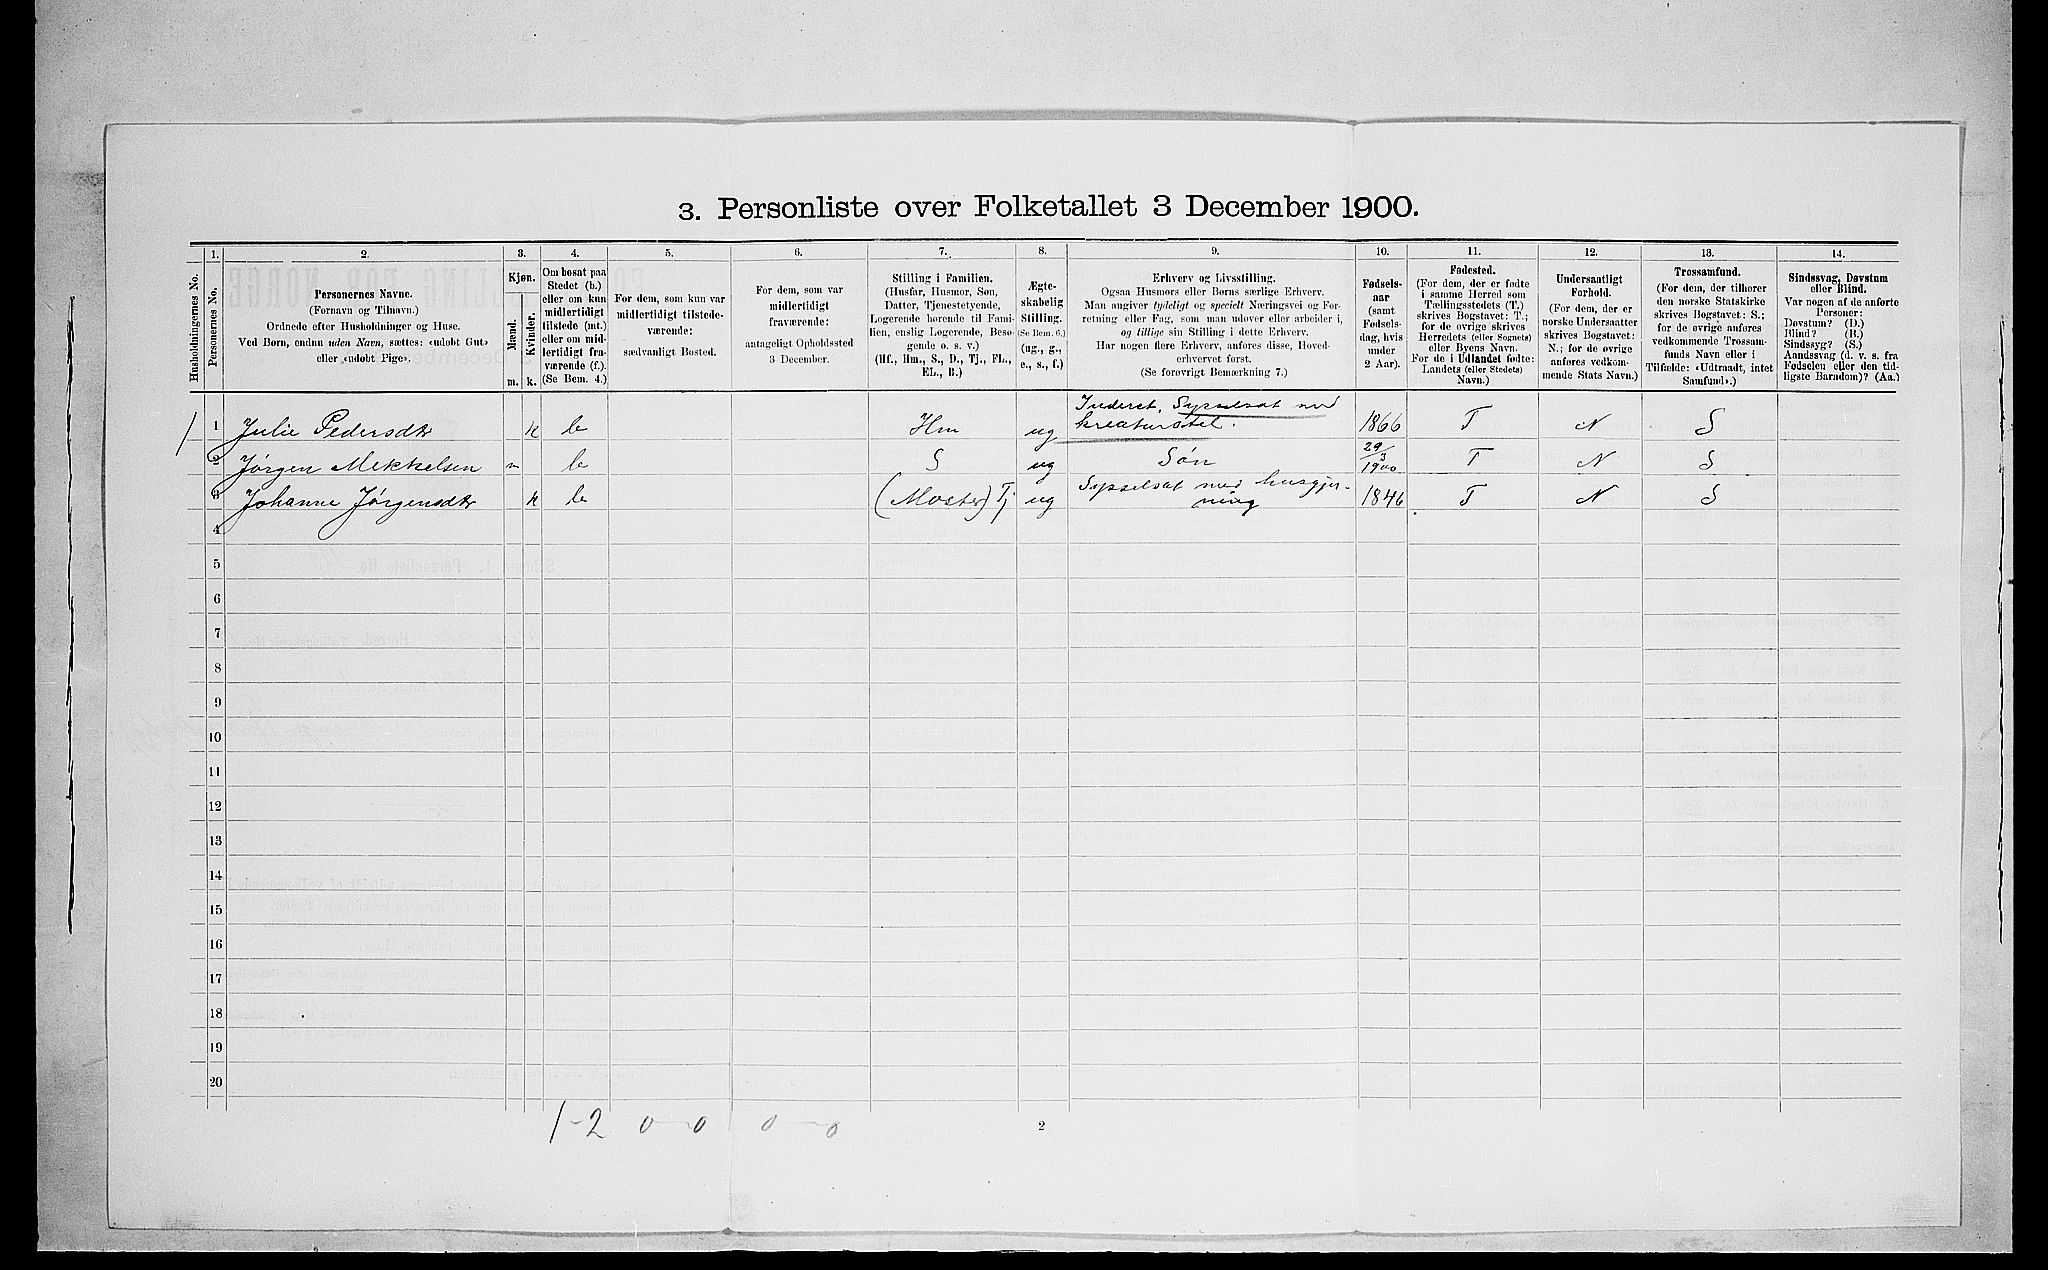 3. Personliste over Folketallet 3 December 1900.
1. 2. 3. 4. 5. 6. 7. 8. 9. 10. 11. 12. 13. 14.
Husholdningernes No.
Personernes No.
Personernes Navne.
(Fornavn og Tilnavn.)
Ordnede efter Husholdninger og Huse.
Ved Børn, endnu uden Navn, sættes: «udøbt Gut»
eller «udøbt Pige».
Kjøn.
Mænd.
Kvinder.
m. k.
Om bosat paa
Stedet (b.)
eller om kun
midlertidigt
tilstede (mt.)
eller om mid-
lertidigt fra-
værende (f.).
(Se Bem. 4.)
For dem, som kun var
midlertidigt tilstede-
værende:
sædvanligt Bosted.
For dem, som var
midlertidigt
fraværende:
antageligt Opholdssted
3 December.
Stilling i Familien.
(Husfar, Husmor, Søn,
Datter, Tjenestetyende,
Logerende hørende til Fami-
lien, enslig Logerende, Besø-
gende o. s. v.)
(Hf., Hm., S., D., Tj., FL.,
EL., B.)
Ægte-
skabelig
Stilling.
(Se Bem. 6.)
(ug., g.,
e., s., f.)
Erhverv og Livsstilling.
Ogsaa Husmors eller Børns særlige Erhverv.
Man angiver tydeligt og specielt Næringsvei og For-
retning eller Fag, som man udøver eller arbeider i,
og tillige sin Stilling i dette Erhverv.
Har nogen flere Erhverv, anføres disse, Hoved-
erhvervet først.
(Se forøvrigt Bemærkning 7.)
Fødsels-
aar
(samt
Fødsels-
dag, hvis
under
2 Aar).
Fødested.
(For dem, der er fødte
i samme Herred som
Tællingsstedets (T.)
skrives Bogstavet: T.;
for de øvrige skrives
Herredets (eller Sognets)
eller Byens Navn.
For de i Udlandet fødte:
Landets (eller Stedets)
Navn.)
Undersaatligt
Forhold.
(For dem, der er
norske Undersaatter
skrives Bogstavet:
N.; for de øvrige
anføres vedkom-
mende Stats Navn.)
Trossamfund.
(For dem, der tilhører
den norske Statskirke
skrives Bogstavet: S.;
for de øvrige anføres
vedkommende Trossam-
funds Navn eller i
Tilfælde: «Udtraadt, intet
Samfund».)
Sindssvag, Døvstum
eller Blind.
Var nogen af de anførte
Personer:
Døvstum? (D.)
Blind? (B.)
Sindssyg? (S.)
Aandssvag (d. v. s. fra
Fødselen eller den tid-
ligste Barndom)? (Aa.)
1 1 Julie Pedersdtr k b Hm ug Inderst, Sysselsat med kreaturstel. 1866 T N S
2 Jørgen Mikkelsen m b S ug Søn 29/3 1900 T N S
3 Johanne Jørgensdtr k b (Moster) Tj ug Sysselsat med husgjer- ning 1846 T N S
4
5
6
7
8
9
10
11
12
13
14
15
16
17
18
19
20
1-2 0-0 0-0
2